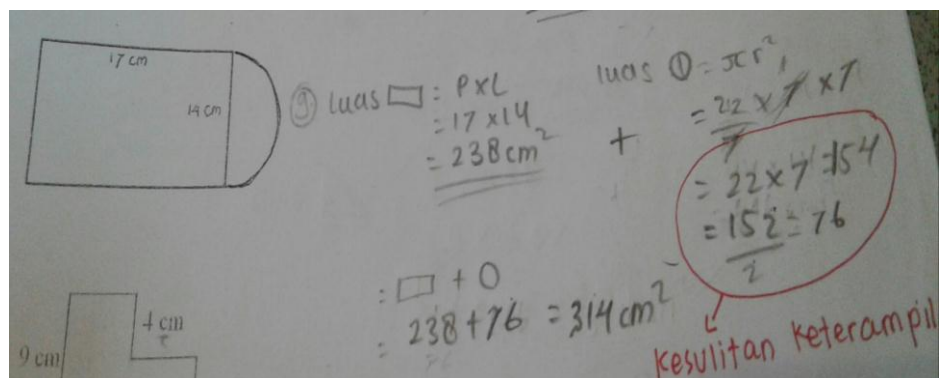 17 cm
14 cm
⑨ luas ▭ : P x L
= 17 x 14
= 238 cm²
+
luas ① = πr²
= 22/7 x 7 x 7
= 22 x 7 = 154
= 152/2 = 76
= ▭ + O
= 238 + 76 = 314 cm²
Kesulitan keterampil
4 cm
9 cm